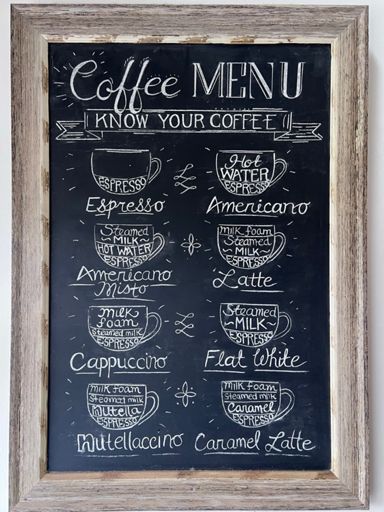 Coffee MENU
KNOW YOUR COFFEE
ESPRESSO
Espresso
Hot
WATER
ESPRESSO
Americano
Steamed
~MILK~
HOT WATER
ESPRESSO
Americano
Misto
milk foam
Steamed
~MILK~
ESPRESSO
Latte
milk
foam
Steamed milk
ESPRESSO
Cappuccino
Steamed
~MILK~
ESPRESSO
Flat White
milk foam
Steamed milk
nutella
ESPRESSO
nutellaccino
milk foam
Steamed milk
Caramel
ESPRESSO
Caramel Latte